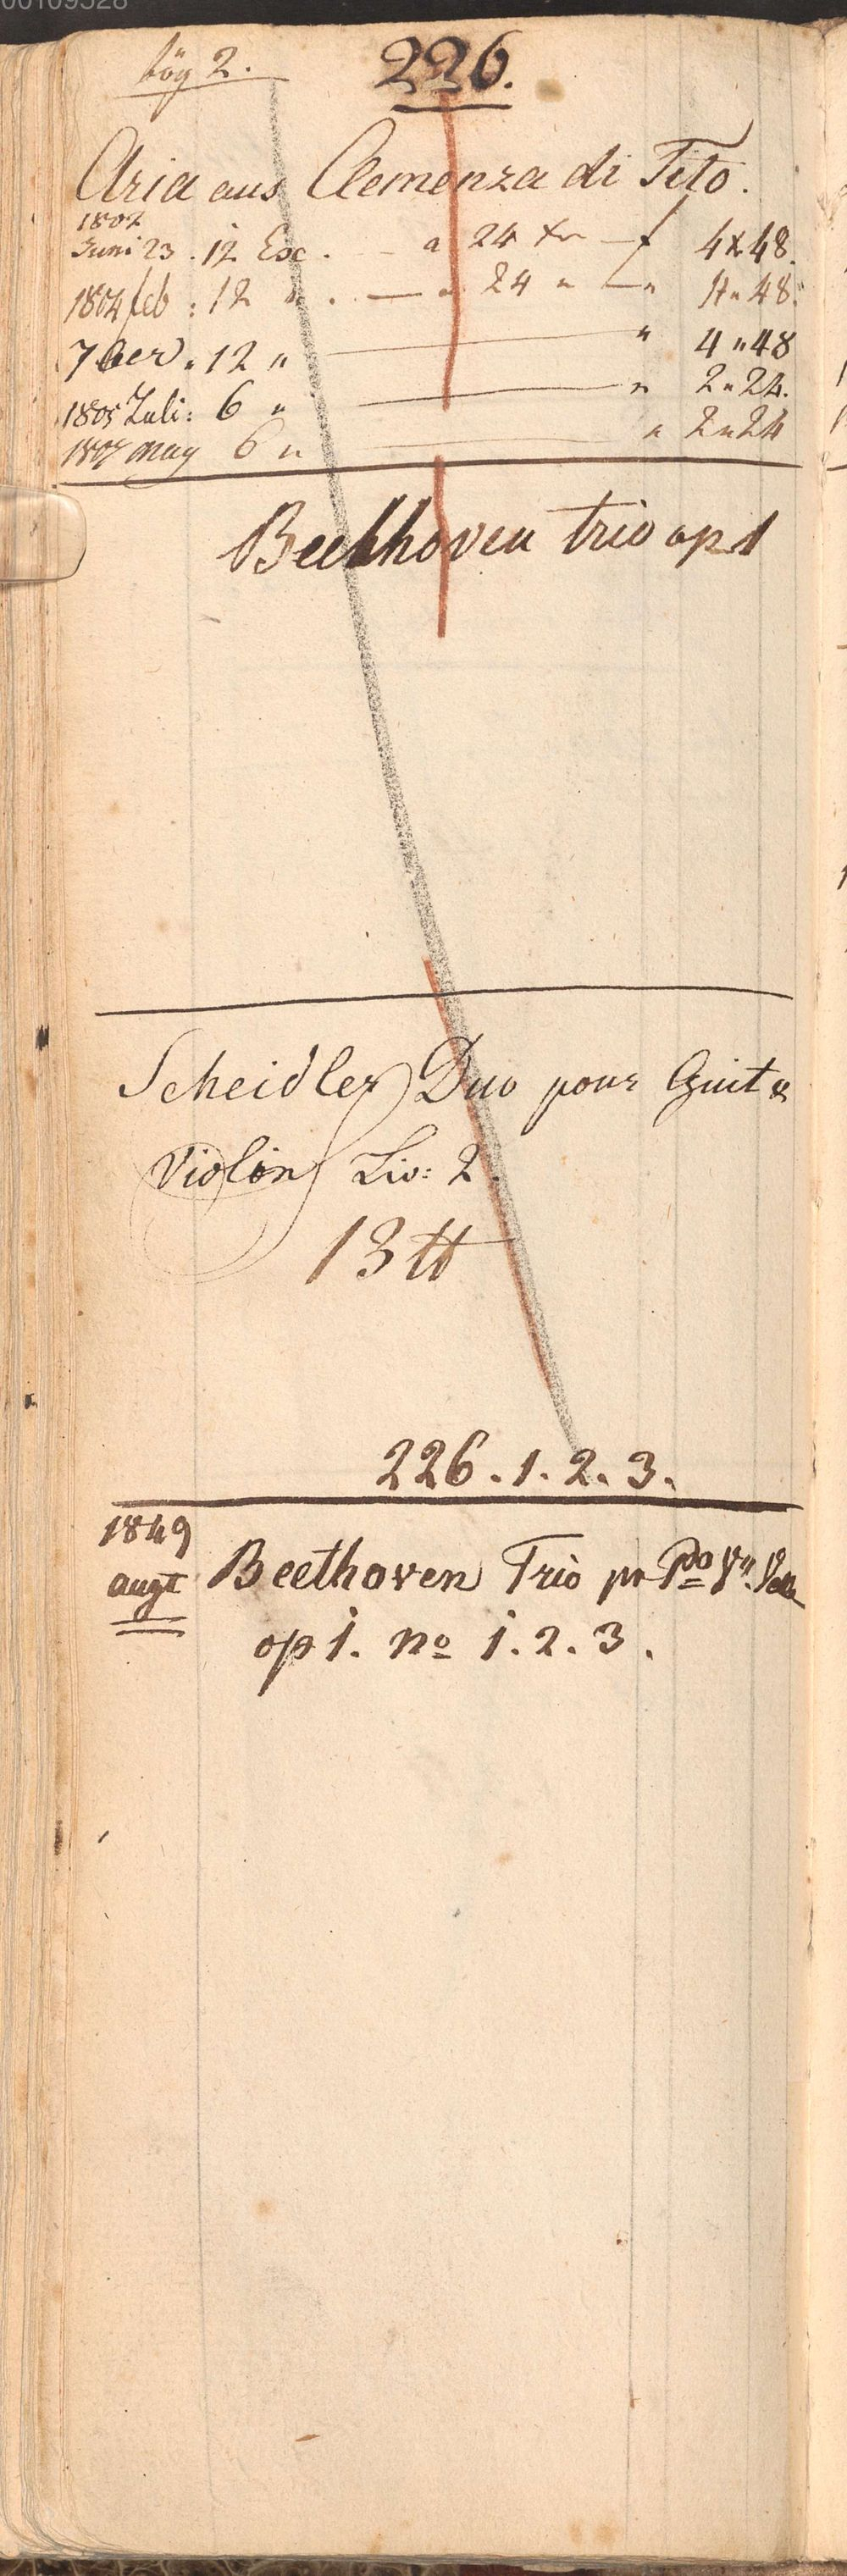 00109528
2.
226.
Aria aus Clemenza di Tito.
1802
Juni 23. 12 Exe. — a 24 xr — f 4x48.
1804 feb: 12 " . — " 24 " — " 4"48.
7ber. 12 " — " 4"48
1805 Juli: 6 " — " 2"24.
1807 May 6 " — " 2"24
Beethoven trio op 1
Scheidler Duo pour Guit &
Violin Liv: 2.
13 tt
226.1.2.3.
1849
augt Beethoven Trio pr Po Vn. Vclle
op 1. No 1.2.3.